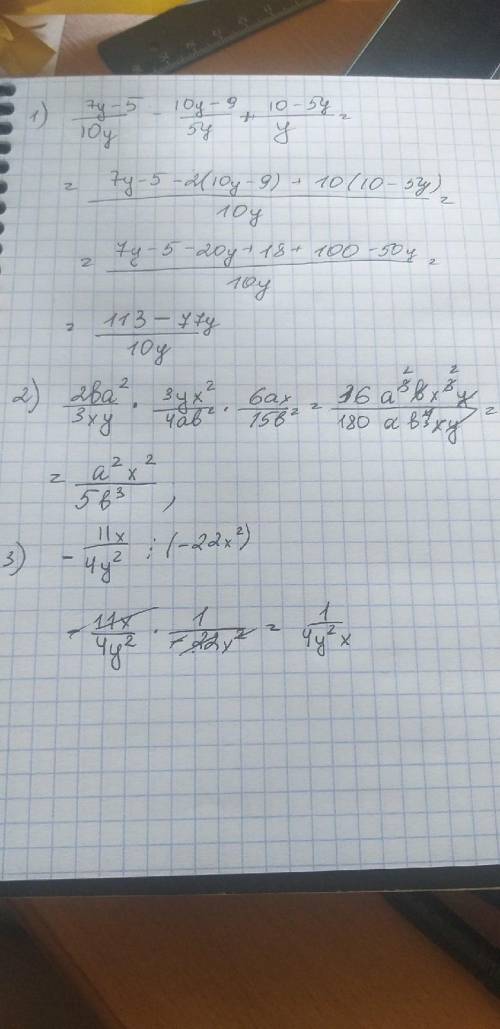 1) (7y-5)/10y - (10y-9)/5y + (10-5y)/y =
= (7y-5-2(10y-9)+10(10-5y))/10y =
= (7y-5-20y+18+100-50y)/10y =
= (113-77y)/10y
2) 2ba²/3xy · 3yx²/4ab² · 6ax/15b² = 36a³bx³y/180ab⁴xy =
= a²x²/5b³,
3) - 11x/4y² : (-22x²)
- 11x/4y² · 1/-22x² = 1/4y²x